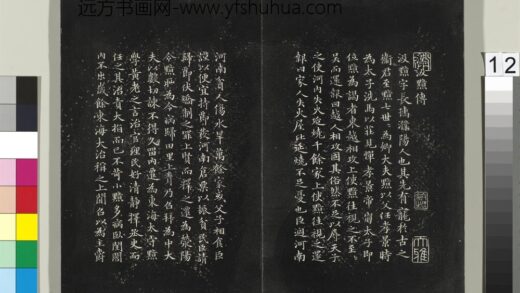 远方书画网-www.yfshuhua.com
12
汲黯傳
汲黯字長孺濮陽人也其先有寵於古之
衛君至黯七世〻為卿大夫黯以父任孝景時
為太子洗馬以莊見憚孝景帝崩太子即
位黯為謁者東越相攻上使黯往視之不至〻
吳而還報曰越人相攻固其俗然不足以辱天子
之使河內失火延燒千餘家上使黯往視之還
報曰家人失火屋比延燒不足憂也臣過河南
河南貧人傷水旱萬餘家或父子相食臣
謹以便宜持節發河南倉粟以振貧民臣請
歸節伏矯制之罪上賢而釋之遷為滎陽
令黯恥為令病歸田里上聞乃召拜為中大
夫以數切諫不得久留內遷為東海太守黯
學黃老之言治官理民好清靜擇丞史而
任之其治責大指而已不苛小黯多病臥閨閣
內不出歲餘東海大治稱之上聞召以為主爵